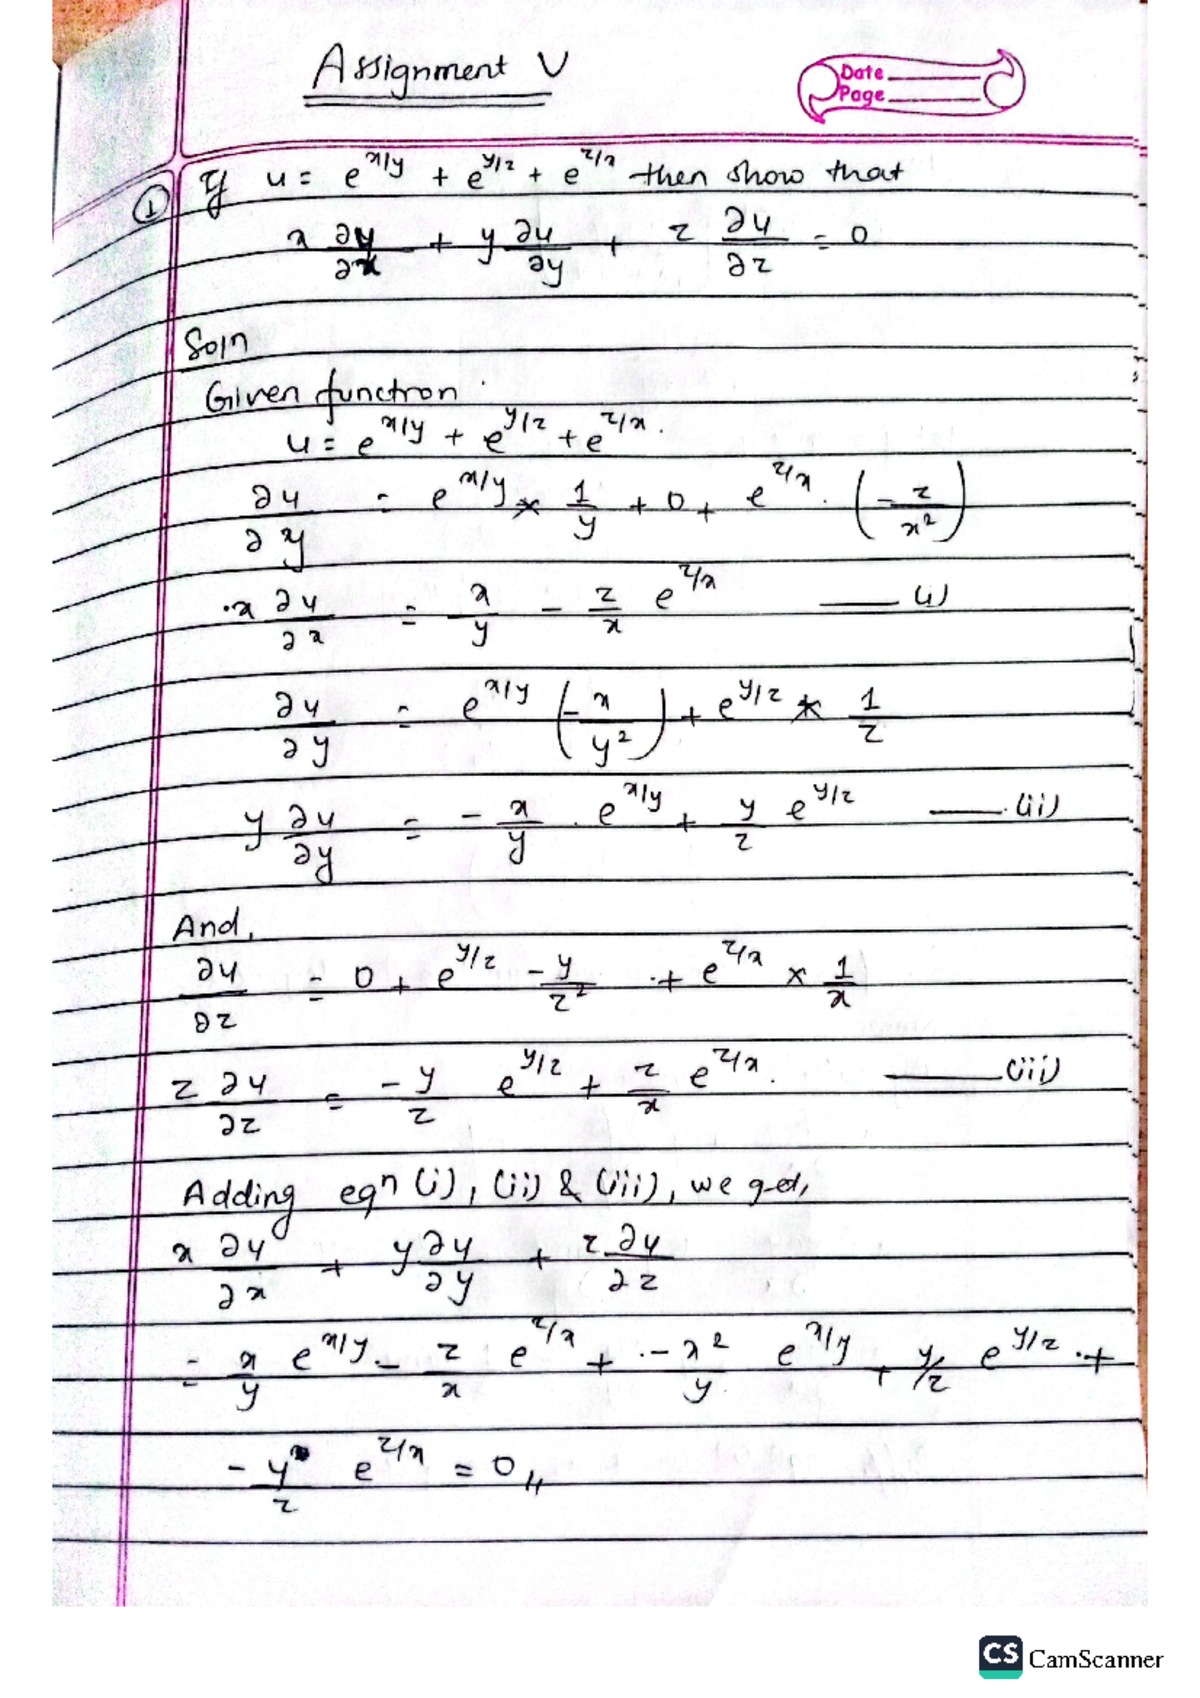 Assignment V
Date
Page
① If u = e^{x/y} + e^{y/z} + e^{z/x} then show that
x ∂u/∂x + y ∂u/∂y + z ∂u/∂z = 0
Soln
Given function
u = e^{x/y} + e^{y/z} + e^{z/x}.
∂u/∂y = e^{x/y} * 1/y + 0 + e^{z/x} . (-z/x²)
.x ∂u/∂x = x/y - z/x e^{z/x} —— (i)
∂u/∂y = e^{x/y} (-x/y²) + e^{y/z} * 1/z
y ∂u/∂y = - x/y . e^{x/y} + y/z e^{y/z} —— (ii)
And,
∂u/∂z = 0 + e^{y/z} -y/z² + e^{z/x} × 1/x
z ∂u/∂z = -y/z e^{y/z} + z/x e^{z/x}. —— (iii)
Adding eqn (i), (ii) & (iii), we get,
x ∂u/∂x + y ∂u/∂y + z ∂u/∂z
= x/y e^{x/y} - z/x e^{z/x} + -x²/y e^{x/y} + y/z e^{y/z} +
- y/z e^{z/x} = 0,,
CS CamScanner